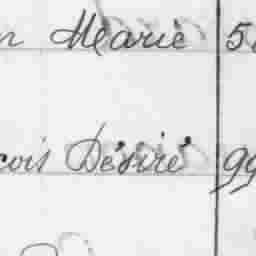 n Marie 5
çois Désiré 99